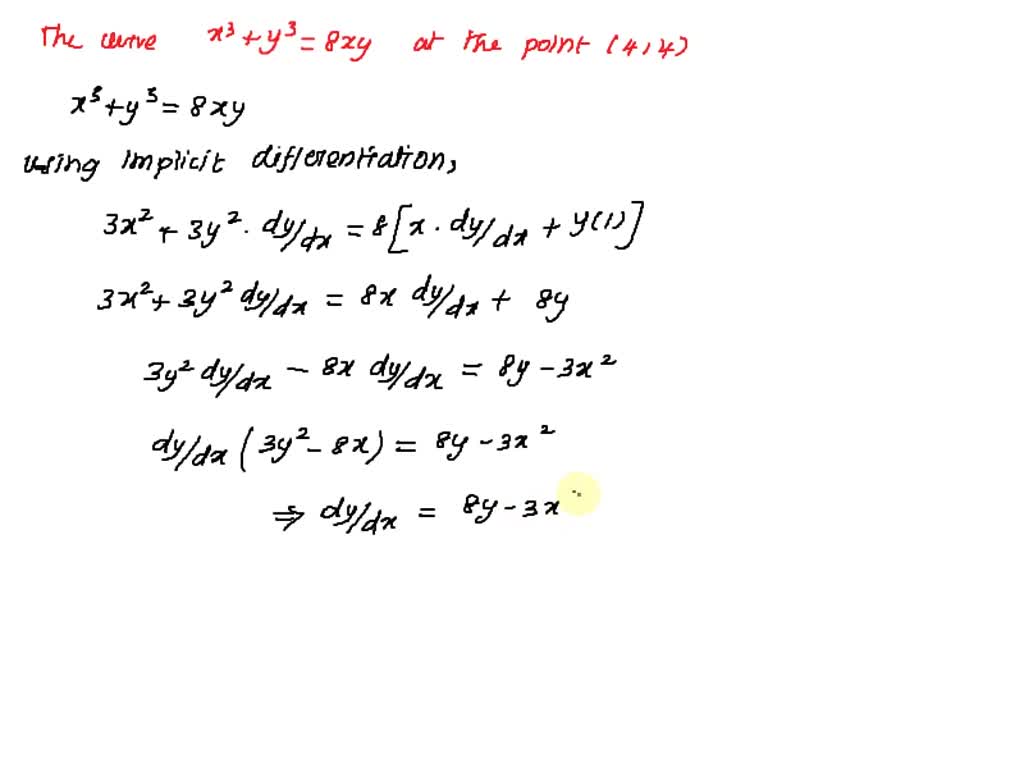 The curve x³+y³=8xy at the point (4,4)
x³+y³=8xy
using implicit differentiation,
3x²+3y².dy/dx=8[x.dy/dx+y(1)]
3x²+3y² dy/dx = 8x dy/dx + 8y
3y² dy/dx - 8x dy/dx = 8y-3x²
dy/dx (3y²-8x) = 8y-3x²
⇒ dy/dx = 8y-3x